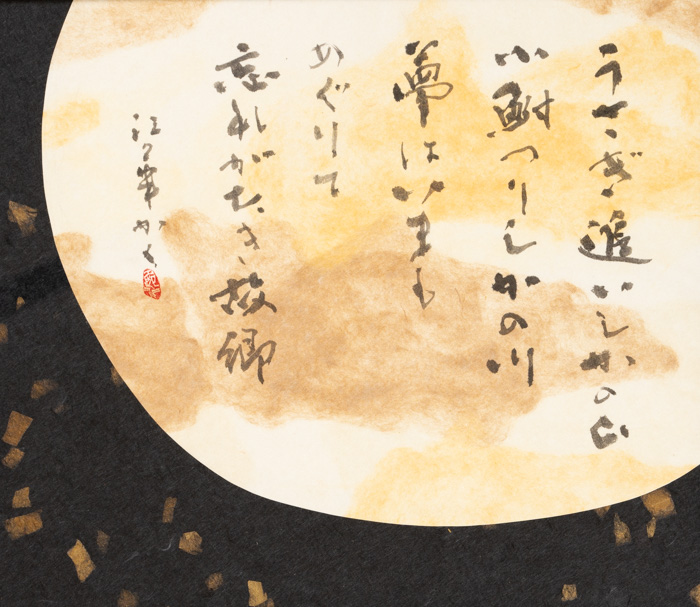 うさぎ追いしかの山
小鮒つりしかの川
夢はいまも
めぐりて
忘れがたき故郷
かく